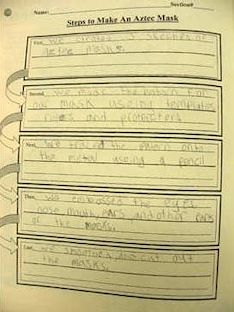 Name: Section#
Steps to Make An Aztec Mask
First, we 3 sketches of
aztec masks.
Second, we made the pattern for
our mask using templates
rulers and protractors
Next, we traced the patern onto
the metal using a pencil
Then, we embossed the eyes
nose mouth ears and other parts
of the masks.
Last, we and cut out
the masks.